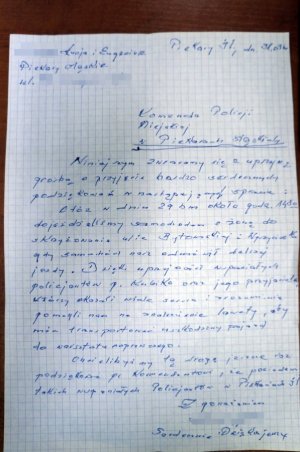 Lucja i Eugeniusz Piekary Śl, dn.
Piekary Śląskie
ul.
Komenda Policji
Miejskiej
w Piekarach Śląskich
Niniejszym zwracamy się z uprzejmą
prośbą o przyjęcie bardzo serdecznych
podziękowań w następującej sprawie:
Otóż w dniu 29 bm około godz.
dojeżdzaliśmy samochodem z żoną do
skrzyżowania ulic Bytomskiej i
gdy samochód nasz odmówił dalszej
jazdy. Dzięki uprzejmości wspaniałych
policjantów p. oraz jego przyjaciela
którzy okazali wiele serca i
pomogli nam na załatwienie lawety, aby
móc transportować uszkodzony pojazd
do warsztatu naprawczego.
Chcielibyśmy tą drogą jeszcze raz
podziękować p. Komendantowi, że posiada
takich wspaniałych Policjantów w Piekarach Śl
Z poważaniem
Serdecznie Dziękujemy